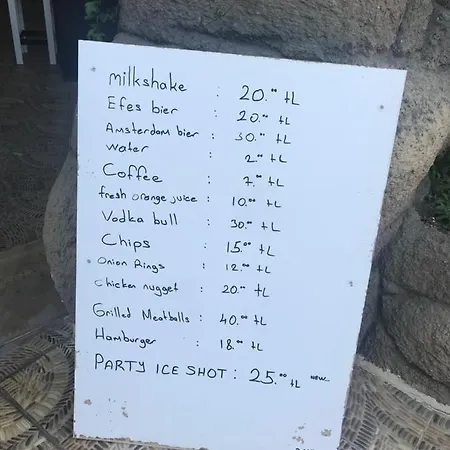 milkshake : 20.00 tL
Efes bier : 20.00 tL
Amsterdam bier : 30.00 tL
water : 2.00 tL
Coffee : 7.00 tL
fresh orange juice : 10.00 tL
Vodka bull : 30.00 tL
Chips : 15.00 tL
Onion Rings : 12.00 tL
Chicken nugget : 20.00 tL
Grilled Meatballs : 40.00 tL
Hamburger : 18.00 tL
PARTY ICE SHOT : 25.00 tL new...